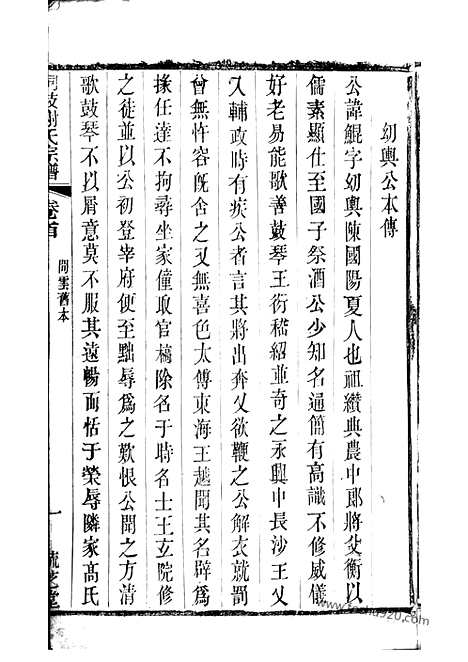 幼輿公本傳
公諱鯤字幼輿陳國陽夏人也祖纘典農中郎將父衡以
儒素顯仕至國子祭酒公少知名通簡有高識不修威儀
好老易能歌善鼓琴王衍嵇紹並奇之永興中長沙王乂
入輔政時有疾公者言其將出奔乂欲鞭之公解衣就罰
曾無忤容旣舍之又無喜色太傅東海王越聞其名辟為
掾任達不拘尋坐家僮取官稿除名于時名士王玄阮修
之徒並以公初登宰府便至黜辱為之歎恨公聞之方清
歌鼓琴不以屑意莫不服其遠暢而恬于榮辱隣家高氏
謝氏宗譜
卷首
閒雲舊本
一